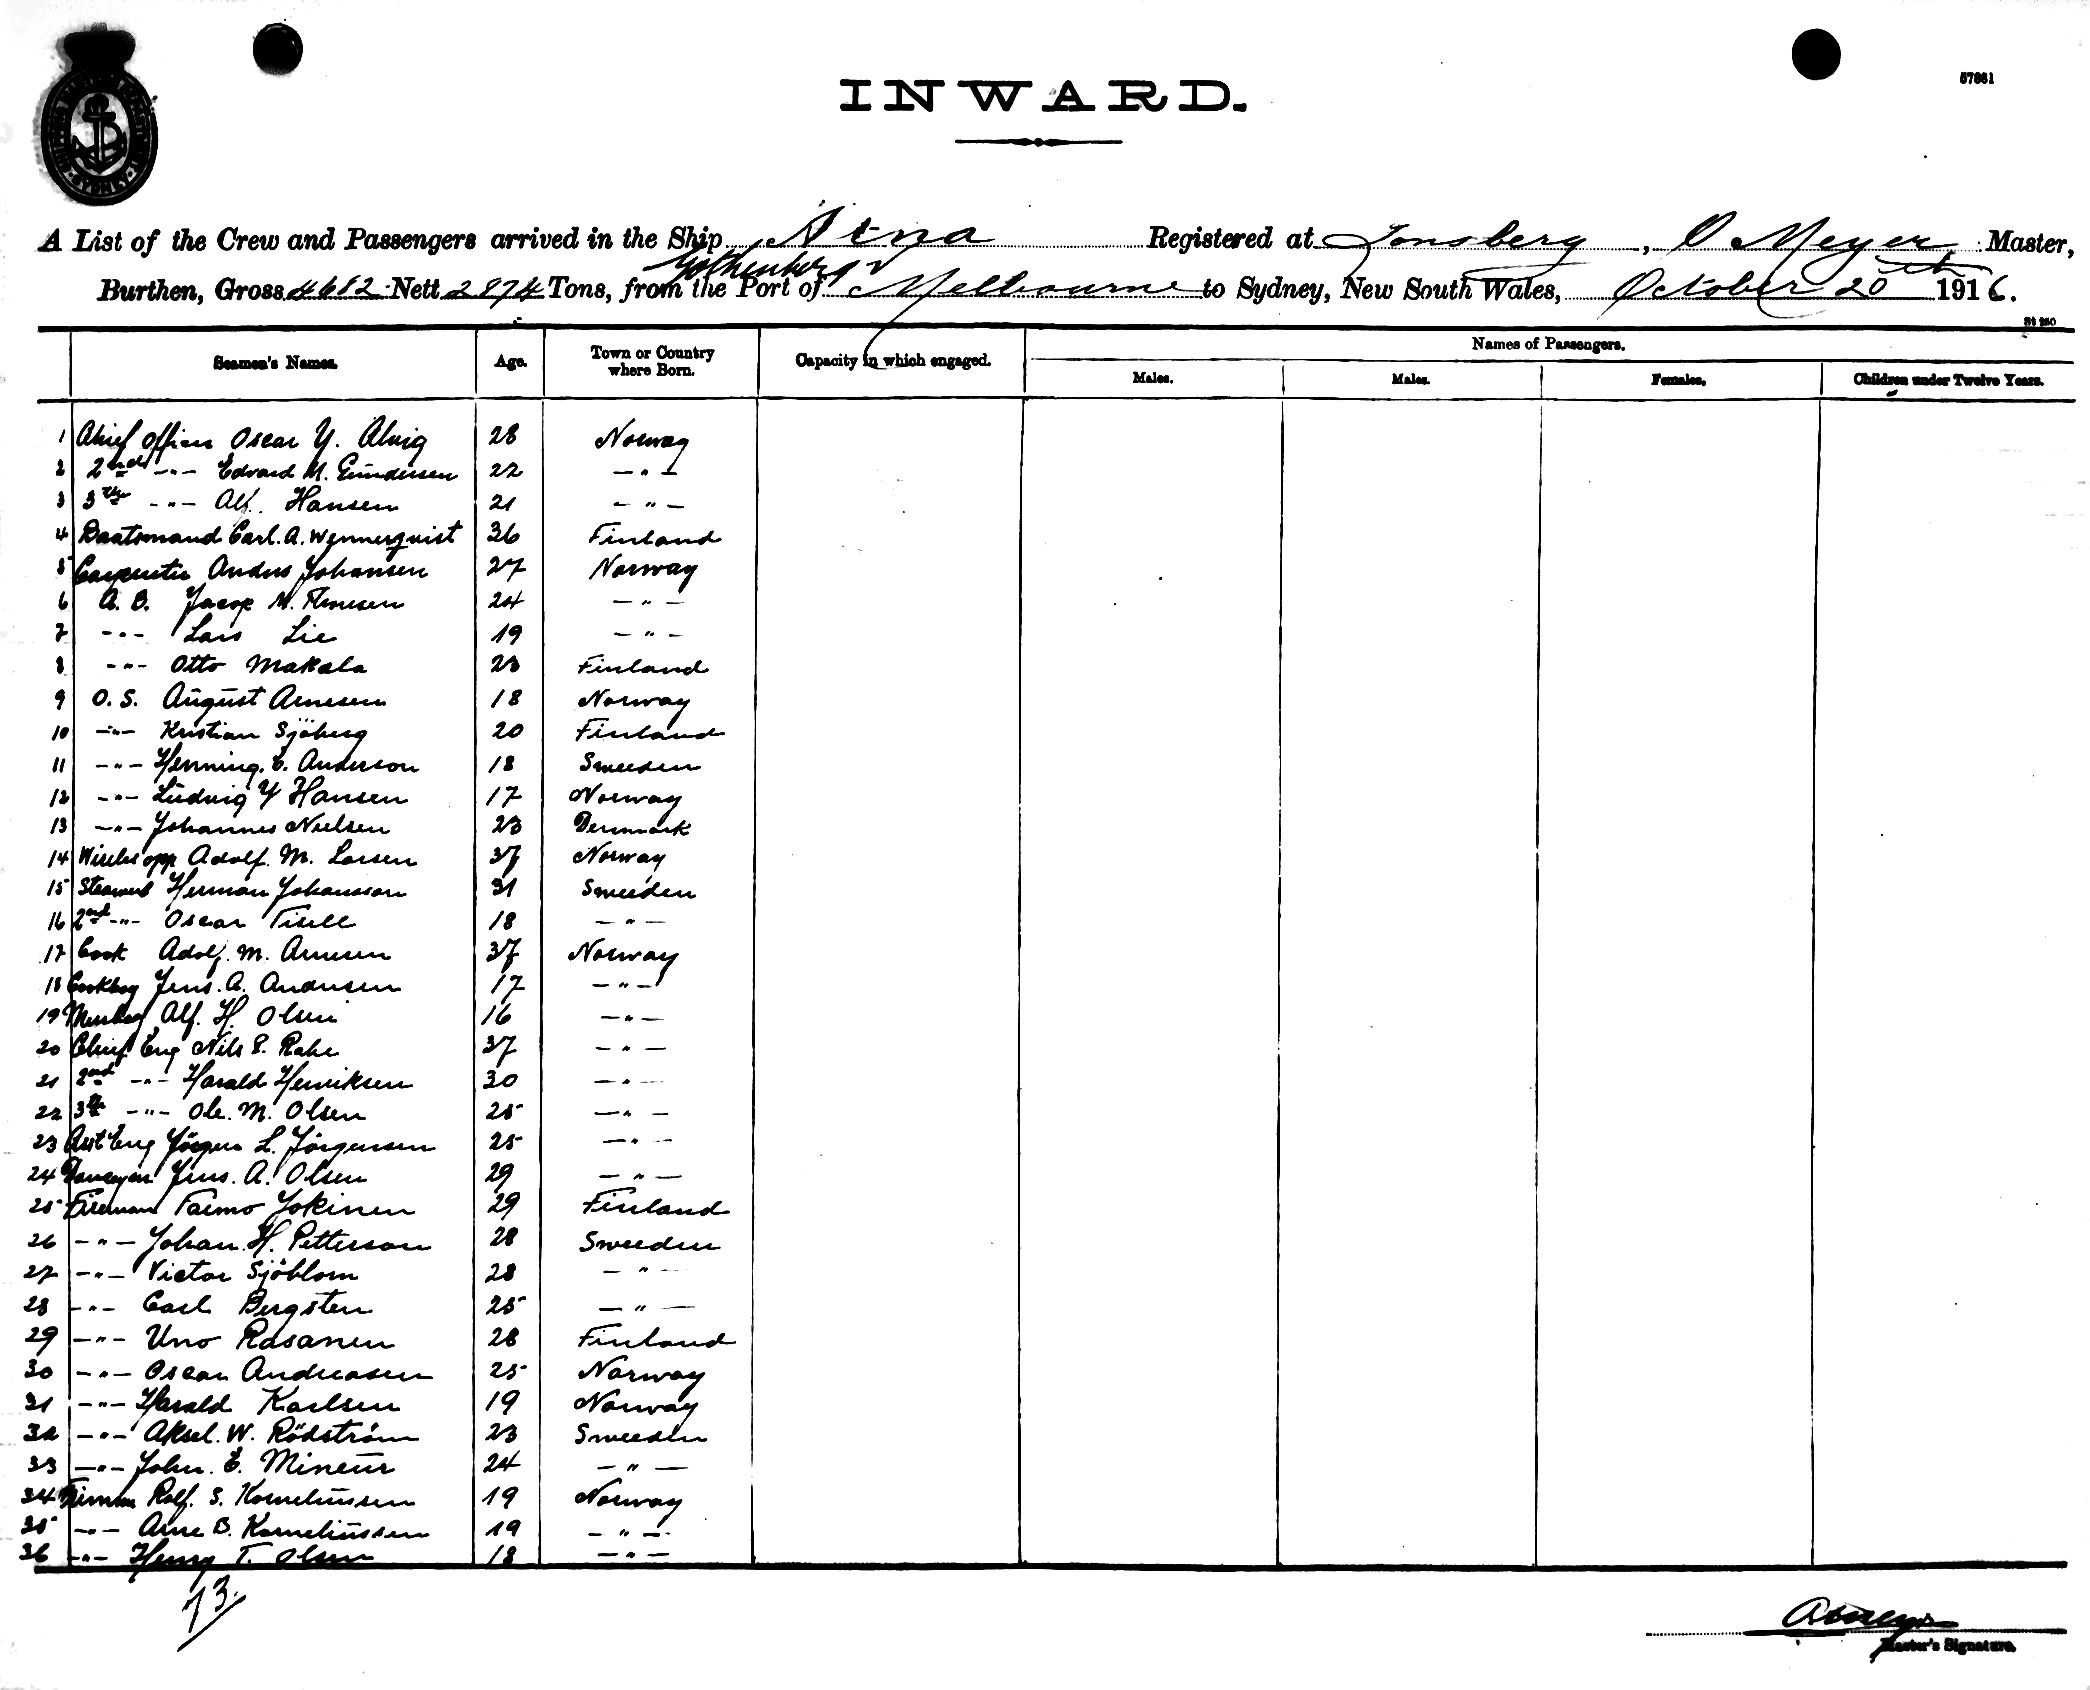 57861
INWARD.
SYDNEY
A List of the Crew and Passengers arrived in the Ship Registered at Tonsberg, O Meyer Master,
Gothenburg
Burthen, Gross 4682 Nett 2874 Tons, from the Port of Melbourne to Sydney, New South Wales, October 20th 1916.
St 250
Seamen's Names. Age. Town or Country where Born. Capacity in which engaged. Names of Passengers.
Males. Males. Females. Children under Twelve Years.
1 Chief Officer Oscar Y. Alvig 28 Norway
2 2nd -"- Edvard M. Gundersen 22 -"-
3 3th -"- Alf. Hansen 21 -"-
4 Baatsmand Carl. A. Wennerqvist 36 Finland
5 Carpenter Anders Johansen 27 Norway
6 A. B. Jacop M. 24 -"-
7 -"- Lars Lie 19 -"-
8 -"- Otto Makala 23 Finland
9 O. S. August Arnesen 18 Norway
10 -"- Kristian Sjöberg 20 Finland
11 -"- Henning. E. Anderson 18 Sweeden
12 -"- Ludvig Y Hansen 17 Norway
13 -"- Johannes Nielsen 23 Denmark
14 Wireles opp Adolf. M. Larsen 37 Norway
15 Steward Herman Johansson 31 Sweeden
16 2nd -"- Oscar Tisell 18 -"-
17 Cook Adolf. M. Arnesen 37 Norway
18 Cookboy Jens. A. Andersen 17 -"-
19 Messboy Alf. H. Olsen 16 -"-
20 Chief Eng Nils P. Rake 37 -"-
21 2nd -"- Harald Henriksen 30 -"-
22 3th -"- Ole. M. Olsen 25 -"-
23 Ast Eng Jörgen L. Jörgensen 25 -"-
24 Jens. A. Olsen 29 -"-
25 Fireman Taimo Jokinen 29 Finland
26 -"- Johan. H. Petterson 28 Sweeden
27 -"- Victor Sjöblom 28 -"-
28 -"- Carl Bergsten 25 -"-
29 -"- Uno Rasanen 28 Finland
30 -"- Oscar Andreasen 25 Norway
31 -"- Harald Karlsen 19 Norway
32 -"- Aksel. W. Rödström 23 Sweeden
33 -"- John. E. Mineur 24 -"-
34 Fireman Rolf. S. Korneliussen 19 Norway
35 -"- Arne B. Korneliussen 19 -"-
36 -"- Henry T. Olsen 18 -"-
73.
Master's Signature.